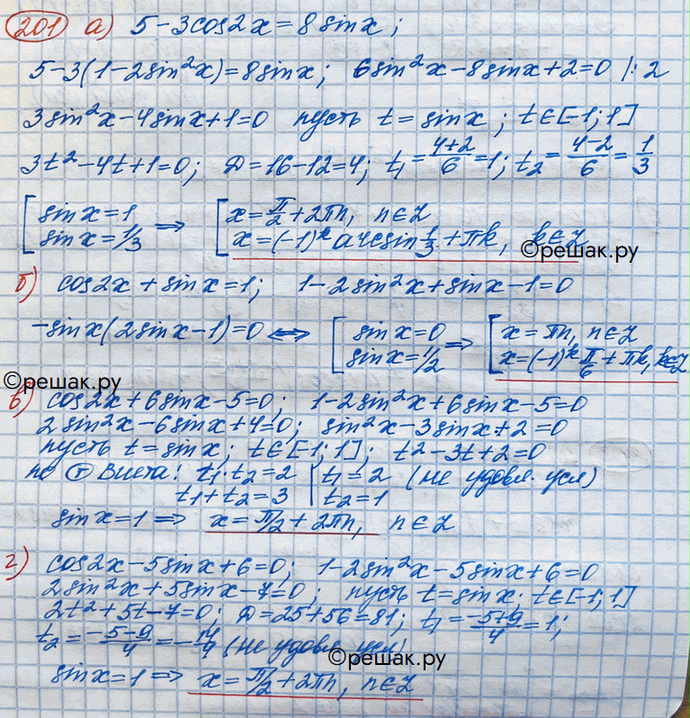 201 а) 5-3cos2x=8sinx;
5-3(1-2sin²x)=8sinx; 6sin²x-8sinx+2=0 |:2
3sin²x-4sinx+1=0 пусть t=sinx; t∈[-1;1]
3t²-4t+1=0; D=16-12=4; t₁=(4+2)/6=1; t₂=(4-2)/6=1/3
[sinx=1 ⇒ [x=π/2+2πn, n∈Z
sinx=1/3 x=(-1)ᵏarcsin1/3+πk, k∈Z
©решак.ру
б) cos2x+sinx=1; 1-2sin²x+sinx-1=0
-sinx(2sinx-1)=0 ⇔ [sinx=0 ⇒ [x=πn, n∈Z
sinx=1/2 x=(-1)ᵏπ/6+πk, k∈Z
©решак.ру
в) cos2x+6sinx-5=0; 1-2sin²x+6sinx-5=0
2sin²x-6sinx+4=0; sin²x-3sinx+2=0
пусть t=sinx; t∈[-1;1]; t²-3t+2=0
по т Виета: t₁·t₂=2 [t₁=2 (не удовл. усл)
t₁+t₂=3 t₂=1
sinx=1 ⇒ x=π/2+2πn, n∈Z
г) cos2x-5sinx+6=0; 1-2sin²x-5sinx+6=0
2sin²x+5sinx-7=0; пусть t=sinx. t∈[-1;1]
2t²+5t-7=0; D=25+56=81; t₁=(-5+9)/4=1;
t₂=(-5-9)/4=-14/4 (не удовл. усл)
©решак.ру
sinx=1 ⇒ x=π/2+2πn, n∈Z